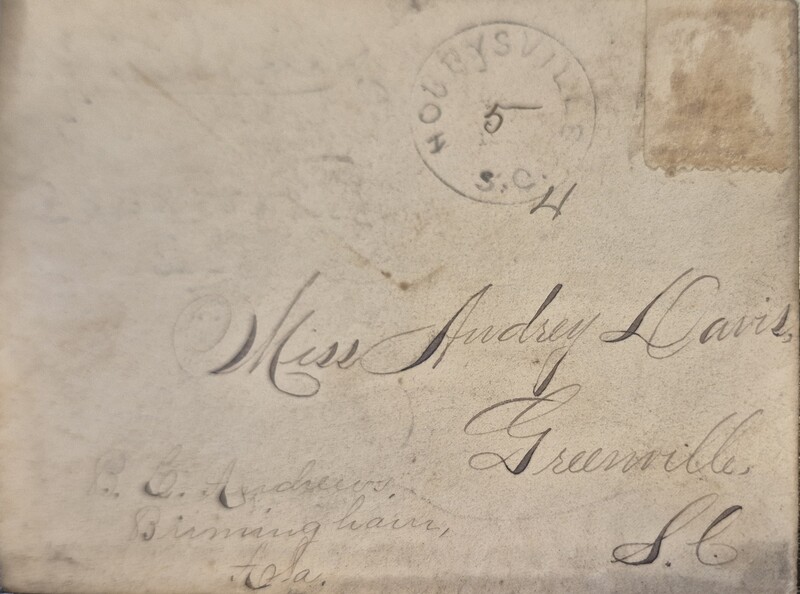 HOLBYSVILLE
5
S.C.
4
Miss Audrey Davis,
Greenville,
S.C
B. E. Andrews
Brimingham,
Ala.